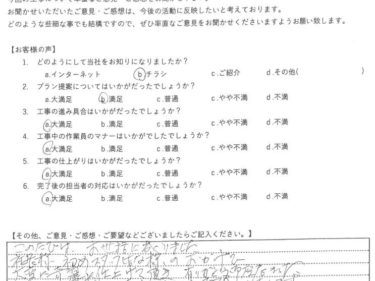 お聞かせいただいたご意見・ご感想は、今後の活動に反映したいと考えております。
どのような些細な事でも結構ですので、ぜひ率直なご意見をお聞かせくださいますようお願い致します。
【お客様の声】
1. どのようにして当社をお知りになりましたか？
a.インターネット b.チラシ c.ご紹介 d.その他( )
2. プラン提案についてはいかがだったでしょうか？
a.大満足 b.満足 c.普通 c.やや不満 d.不満
3. 工事の進み具合はいかがだったでしょうか？
a.大満足 b.満足 c.普通 c.やや不満 d.不満
4. 工事中の作業員のマナーはいかがでしたでしょうか？
a.大満足 b.満足 c.普通 c.やや不満 d.不満
5. 工事の仕上がりはいかがだったでしょうか？
a.大満足 b.満足 c.普通 c.やや不満 d.不満
6. 完了後の担当者の対応はいかがだったでしょうか？
a.大満足 b.満足 c.普通 c.やや不満 d.不満
【その他、ご意見・ご感想・ご要望などございましたらご記入ください。】
このたびは お世話になりました